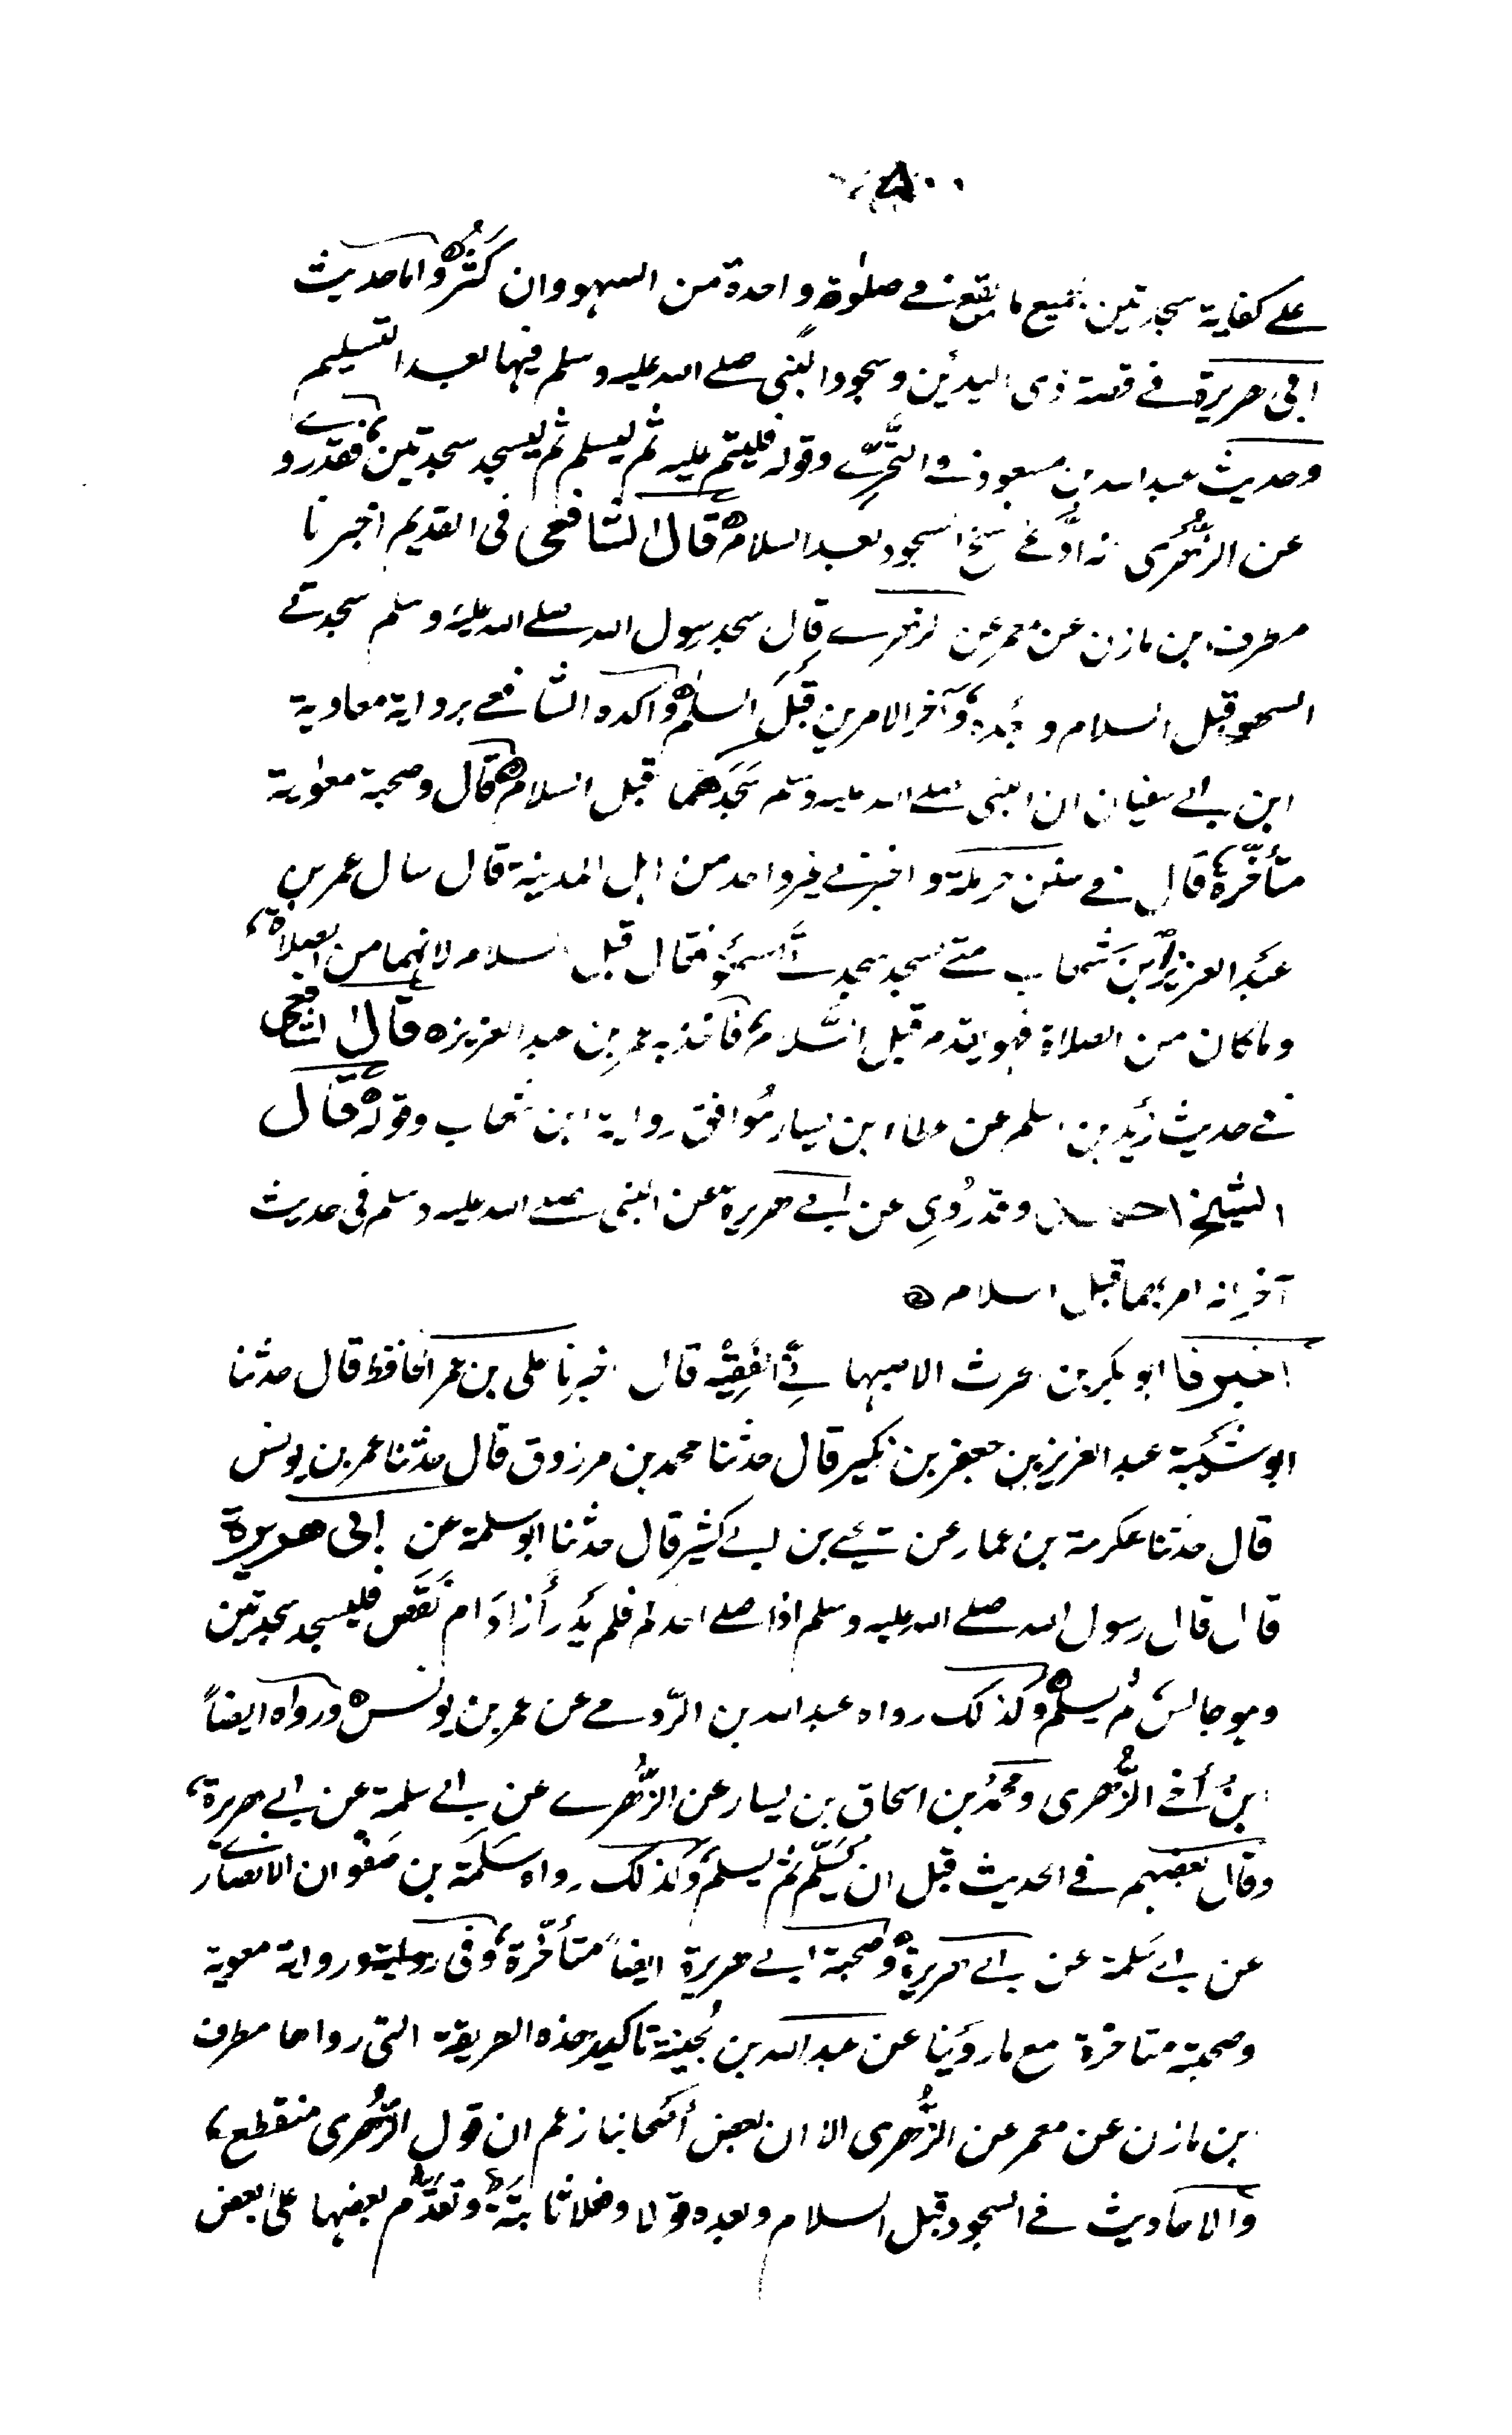 ٨٠٠
على كفاية سجدتين بجميع ما يقع في صلوة واحدة من السهو وان كثر واما حديث
ابي هريرة في قصة ذى اليدين وسجود النبى صلى الله عليه وسلم فيها بعد التسليم
وحديث عبدالله بن مسعود في التحرى وقوله فليتم عليه ثم ليسلم ثم ليسجد سجدتين، فقد روى
عن الزهرى انه ادعى نسخ السجود بعد السلام قال الشافعى فى القديم اخبرنا
مطرف بن مازن عن معمر عن الزهرى قال سجد رسول الله صلى الله عليه وسلم سجدتى
السهو قبل السلام وبعده، وآخر الامرين قبل السلم واكده الشافعى برواية معاوية
ابن ابى سفيان ان النبى صلى الله عليه وسلم سجدهما قبل السلام قال وصحبة معوية
متأخرة، قال في سنن حرملة واخبرنى غير واحد من اهل المدينة قال سال عمر بن
عبد العزيز ابن شهاب متى تسجد سجدتا السهو فقال قبل السلام لانهما من الصلاة،
وما كان من الصلاة فهو يقدم قبل السلام، فاخذ به عمر بن عبد العزيز ه قال الشافعى
في حديث زيد بن اسلم عن عطاء ابن يسار موافق رواية ابن شهاب وقوله قال
الشيخ احمد وقد روى عن ابى هريرة عن النبى صلى الله عليه وسلم فى حديث
آخر انه امر بهما قبل السلام
اخبرنا ابو بكر بن الحرث الاصبهانى الفقيه قال اخبرنا على بن عمر الحافظ قال حدثنا
ابو شيبة عبد العزيز بن جعفر بن بكير قال حدثنا محمد بن مرزوق قال حدثنا عمر بن يونس
قال حدثنا عكرمة بن عمار عن يحيى بن ابى كثير قال حدثنا ابو سلمة عن ابى هريرة
قال قال رسول الله صلى الله عليه وسلم اذا صلى احدكم فلم يدر أزاد ام نقص فليسجد سجدتين
وهو جالس، ثم يسلم وكذلك رواه عبد الله بن الرومى عن عمر بن يونس ورواه ايضاً
ابن أخى الزهرى ومحمد بن اسحاق بن يسار عن الزهرى عن ابى سلمة عن ابى هريرة،
وقال بعضهم فى الحديث قبل ان يسلم ثم ليسلم، وكذلك رواه سلمة بن صفوان الانصارى
عن ابى سلمة عن ابى هريرة وصحبة ابى هريرة ايضاً متأخرة، وفى روايته ورواية معوية
وصحبته متاخرة مع ما روينا عن عبدالله بن بحينة تاكيد هذه الطريقة التى رواها مطرف
بن مازن عن معمر عن الزهرى الا ان بعض أصحابنا زعم ان قول الزهرى منقطع،
والاحاديث فى السجود قبل السلام وبعده قولا وفعلا ثابتة وتقدم بعضها على بعض